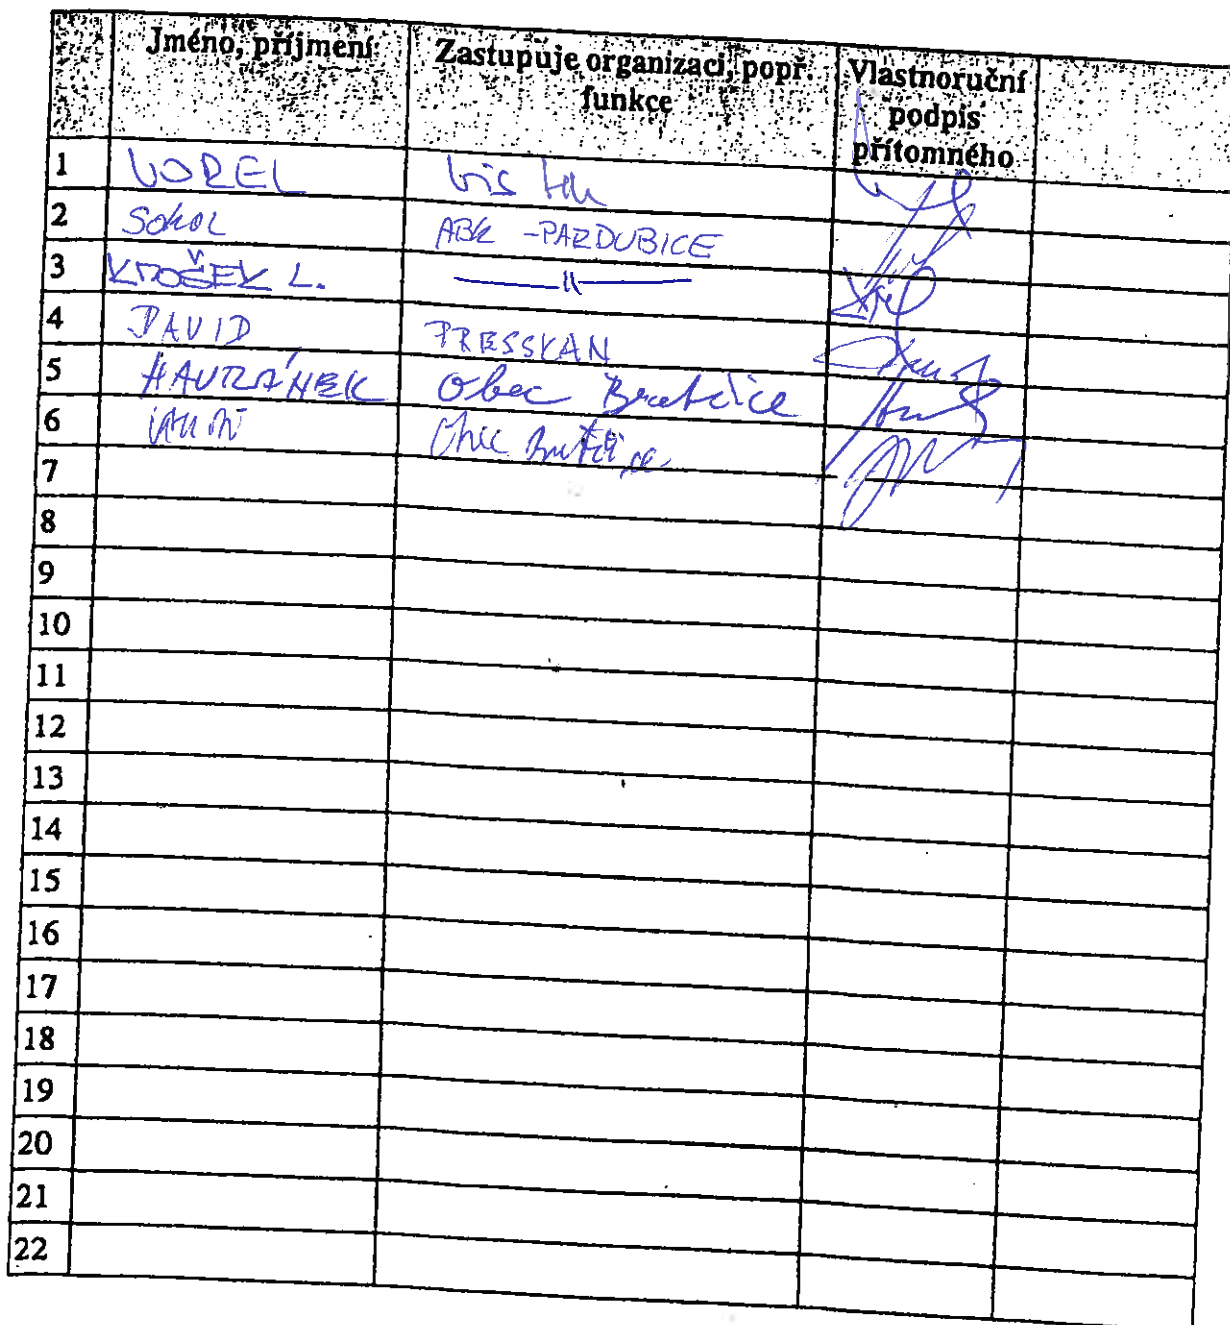 Jméno, příjmení
Zastupuje organizaci, popř. funkce
Vlastnoruční podpis přítomného
1 VOREL
2 Sokol ABK -PARDUBICE
3 KROŠEK L. —〃—
4 DAVID PRESSKAN
5 HAVRÁNEK Obec Bratčice
6 Obec Bratčice
7
8
9
10
11
12
13
14
15
16
17
18
19
20
21
22